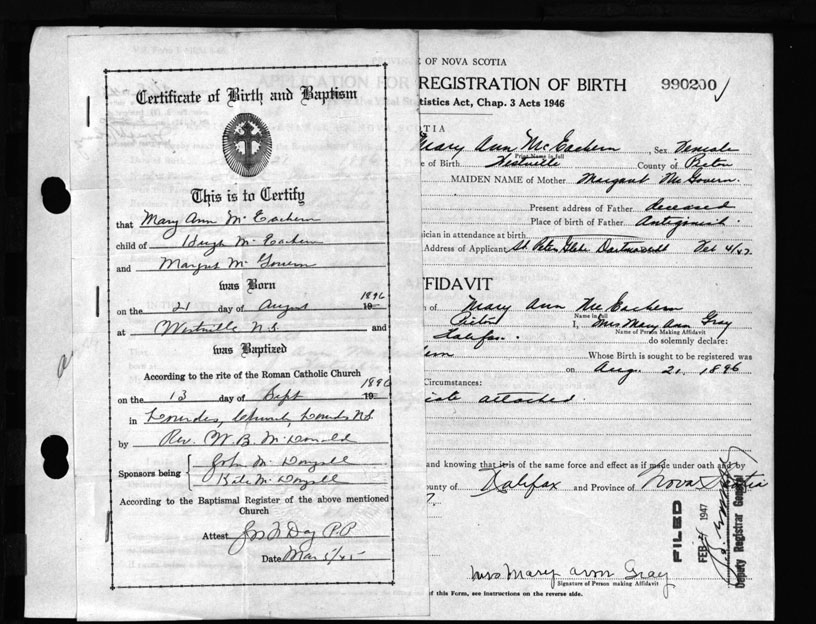 Certificate of Birth and Baptism
This is to Certify
that Mary Ann Mc Eachern
child of Hugh Mc Eachern
and Margret Mc Govern
was Born
1896
on the 21 day of August 19
at Westville N.S. and
was Baptized
According to the rite of the Roman Catholic Church
1896
on the 13 day of Sept 19
in Lourdes, Church, Lourdes N.S.
by Rev. W. B. McDonald
Sponsors being
John Mc Dougall
Kate Mc Dougall
According to the Baptismal Register of the above mentioned
Church
Attest Day P.P.
Date Mar 5/45
OF NOVA SCOTIA
REGISTRATION OF BIRTH 990200
tistics Act, Chap. 3 Acts 1946
Mary Ann McEachern, Sex Female
Print Name in full
of Birth Westville County of Pictou
MAIDEN NAME of Mother Margaret McGovern.
Present address of Father deceased
Place of birth of Father Antigonish
ician in attendance at birth
Address of Applicant St. Peters Glebe Dartmouth Feb 4/47.
FFIDAVIT
of Mary Ann McEachern
Name in full
Pictou I, Mrs Mary Ann Gray
Name of Person Making Affidavit
Halifax. do solemnly declare:
ern Whose Birth is sought to be registered was
on Aug. 21, 1896
Circumstances:
cate attached.
and knowing that it is of the same force and effect as if made under oath and by
ounty of Halifax and Province of Nova Scotia
FILED
FEB 1947
Deputy Registrar General
Mrs Mary Ann Gray
Signature of Person making Affidavit
of this Form, see instructions on the reverse side.